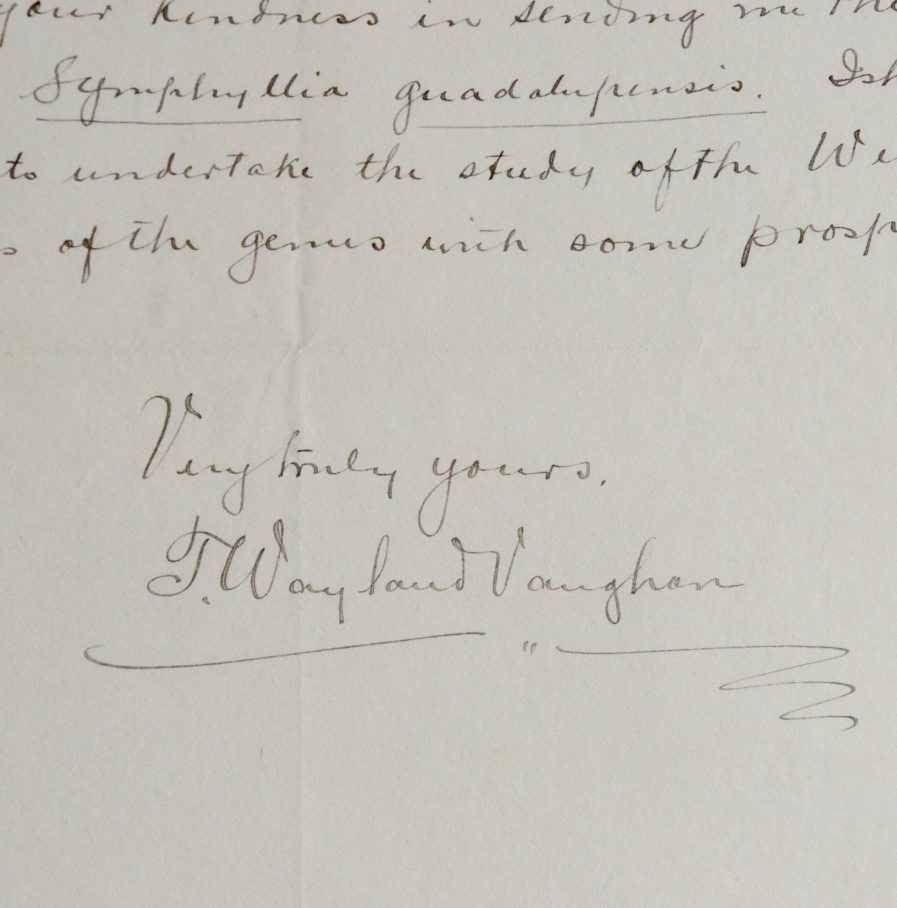 your kindness in sending me the
Symphyllia guadalupensis. I sh
to undertake the study of the We
s of the genus with some prosp
Very truly yours.
T. Wayland Vaughan